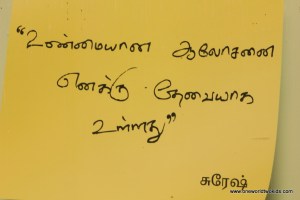 "உண்மையான ஆலோசனை
எனக்கு தேவையாக
உள்ளது"
சுரேஷ்
www.oneworldtwokids.com